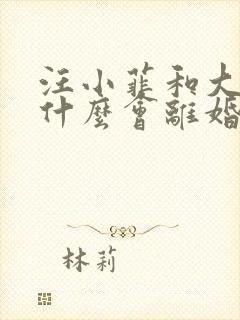 汪小菲和大
什麼會離婚
林莉